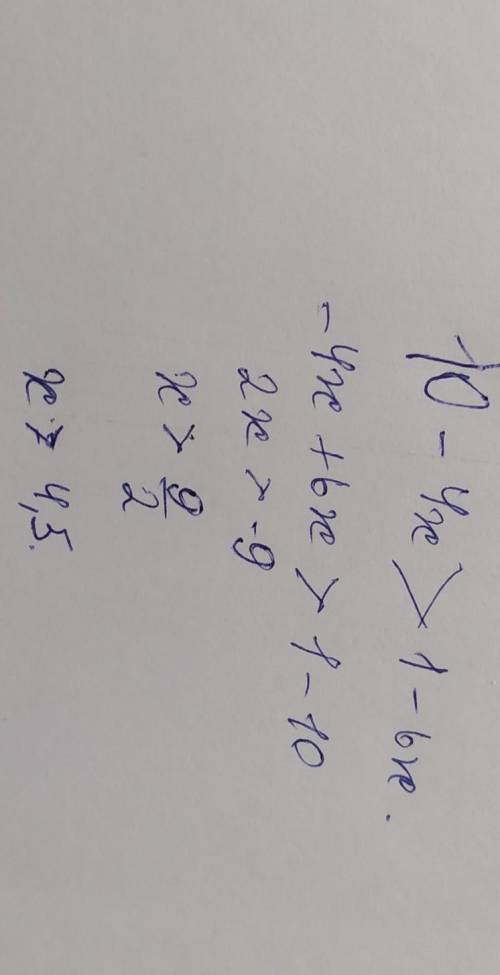 10 - 4x > 1 - 6x.
-4x + 6x > 1 - 10
2x > -9
x > 9/2
x > 4,5.